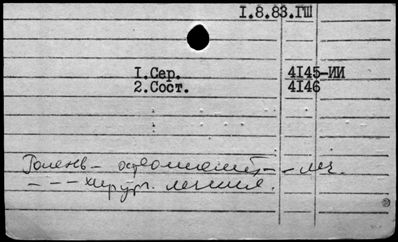 I.8.83.ГШ
I.Сер. 4I45-ИИ
2.Сост. 4I46
Голень - остеомиелит - леч.
- - - хирург. лечение.